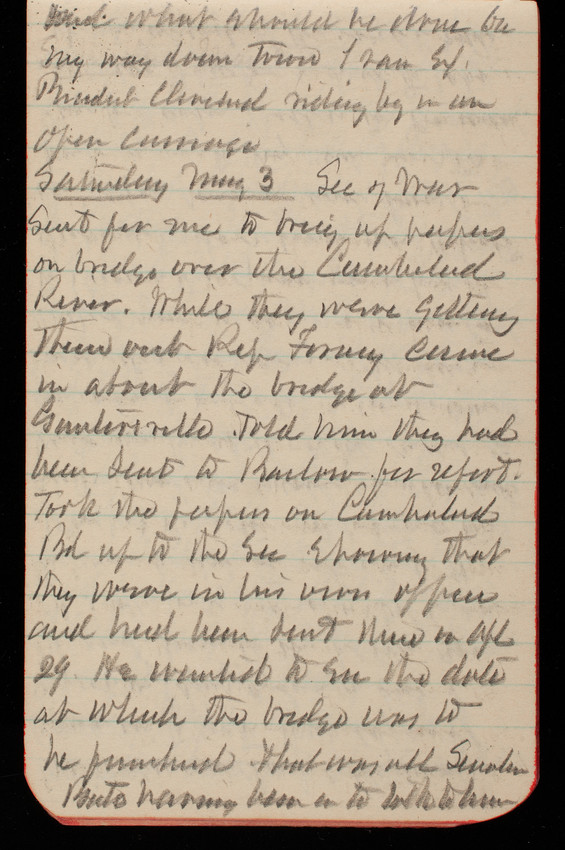 and what should be done On
my way down town I saw Ex.
President Cleveland riding by in an
open carriage
Saturday May 3 Sec of War
Sent for me to bring up papers
on bridge over the Cumberland
River. While they were getting
them out Rep Forney came
in about the bridge at
Guntersville. Told him they had
been sent to Barlow for report.
Took the papers on Cumberland
Bd up to the Sec Showing that
they were in his own office
and had been sent there on Apl
29. He wanted to see the date
at which the bridge was to
be finished. That was all Senator
Bate having been in to talk to him